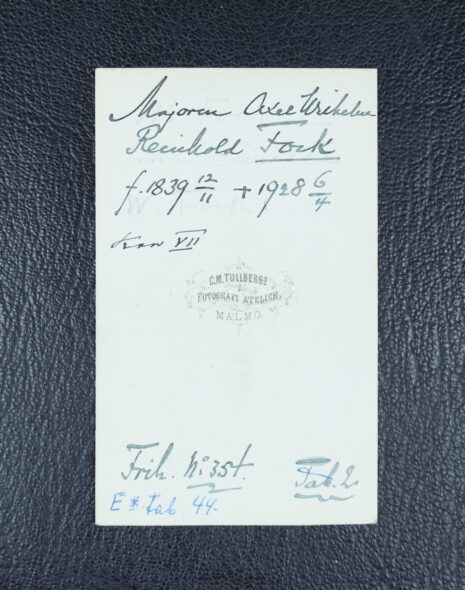 Majoren Axel Wilhelm
Reinhold Fock
f. 1839 12/11 + 1928 6/4
VII
C.M. TULLBERGS
FOTOGRAFI ATELIER,
MALMÖ.
Frih. No 354. Tab. 2.
E tab. 44.